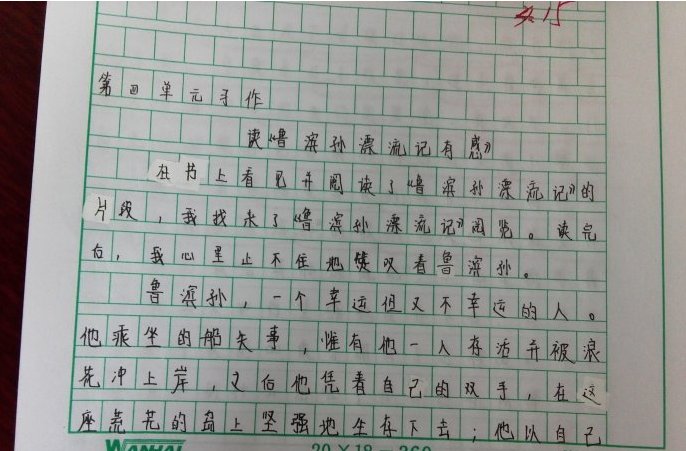 4.15
第四单元习作
读《鲁滨孙漂流记有感》
在书上看见并阅读了《鲁滨孙漂流记》的
片段，我找来了《鲁滨孙漂流记》阅览。读完
后，我心里止不住地赞叹着鲁滨孙。
鲁滨孙，一个幸运但又不幸运的人。
他乘坐的船失事，唯有他一人存活并被浪
花冲上岸，之后他凭着自己的双手，在这
座荒芜的岛上坚强地生存下去；他以自己
WANHAI 20×18=360